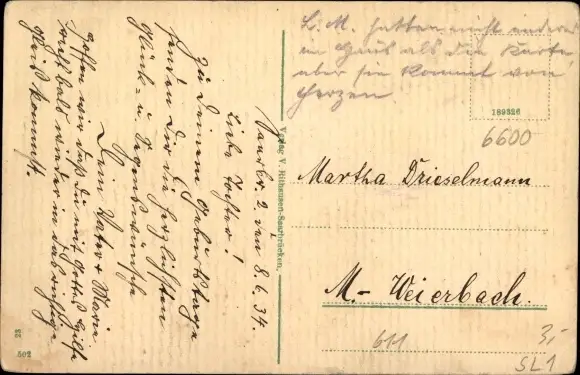 Saarbr. 2. den 8.6.34.
Liebe Tochter!
Zu Deinem Geburtstage
senden Dir die herzlichsten
Glück- u. Segenswünsche
Dein Vater + Marie
hoffen wir daß Du mit Gottes Hilfe
bald wieder in das
kommst.
L. M. hatten nicht anderes
im Haus als die Karte
aber sie kommt von
Herzen
189526
6600
Martha Drieselmann
M.- Weierbach.
611
3,-
SL1
Verlag V. Rithausen-Saarbrücken.
23
502